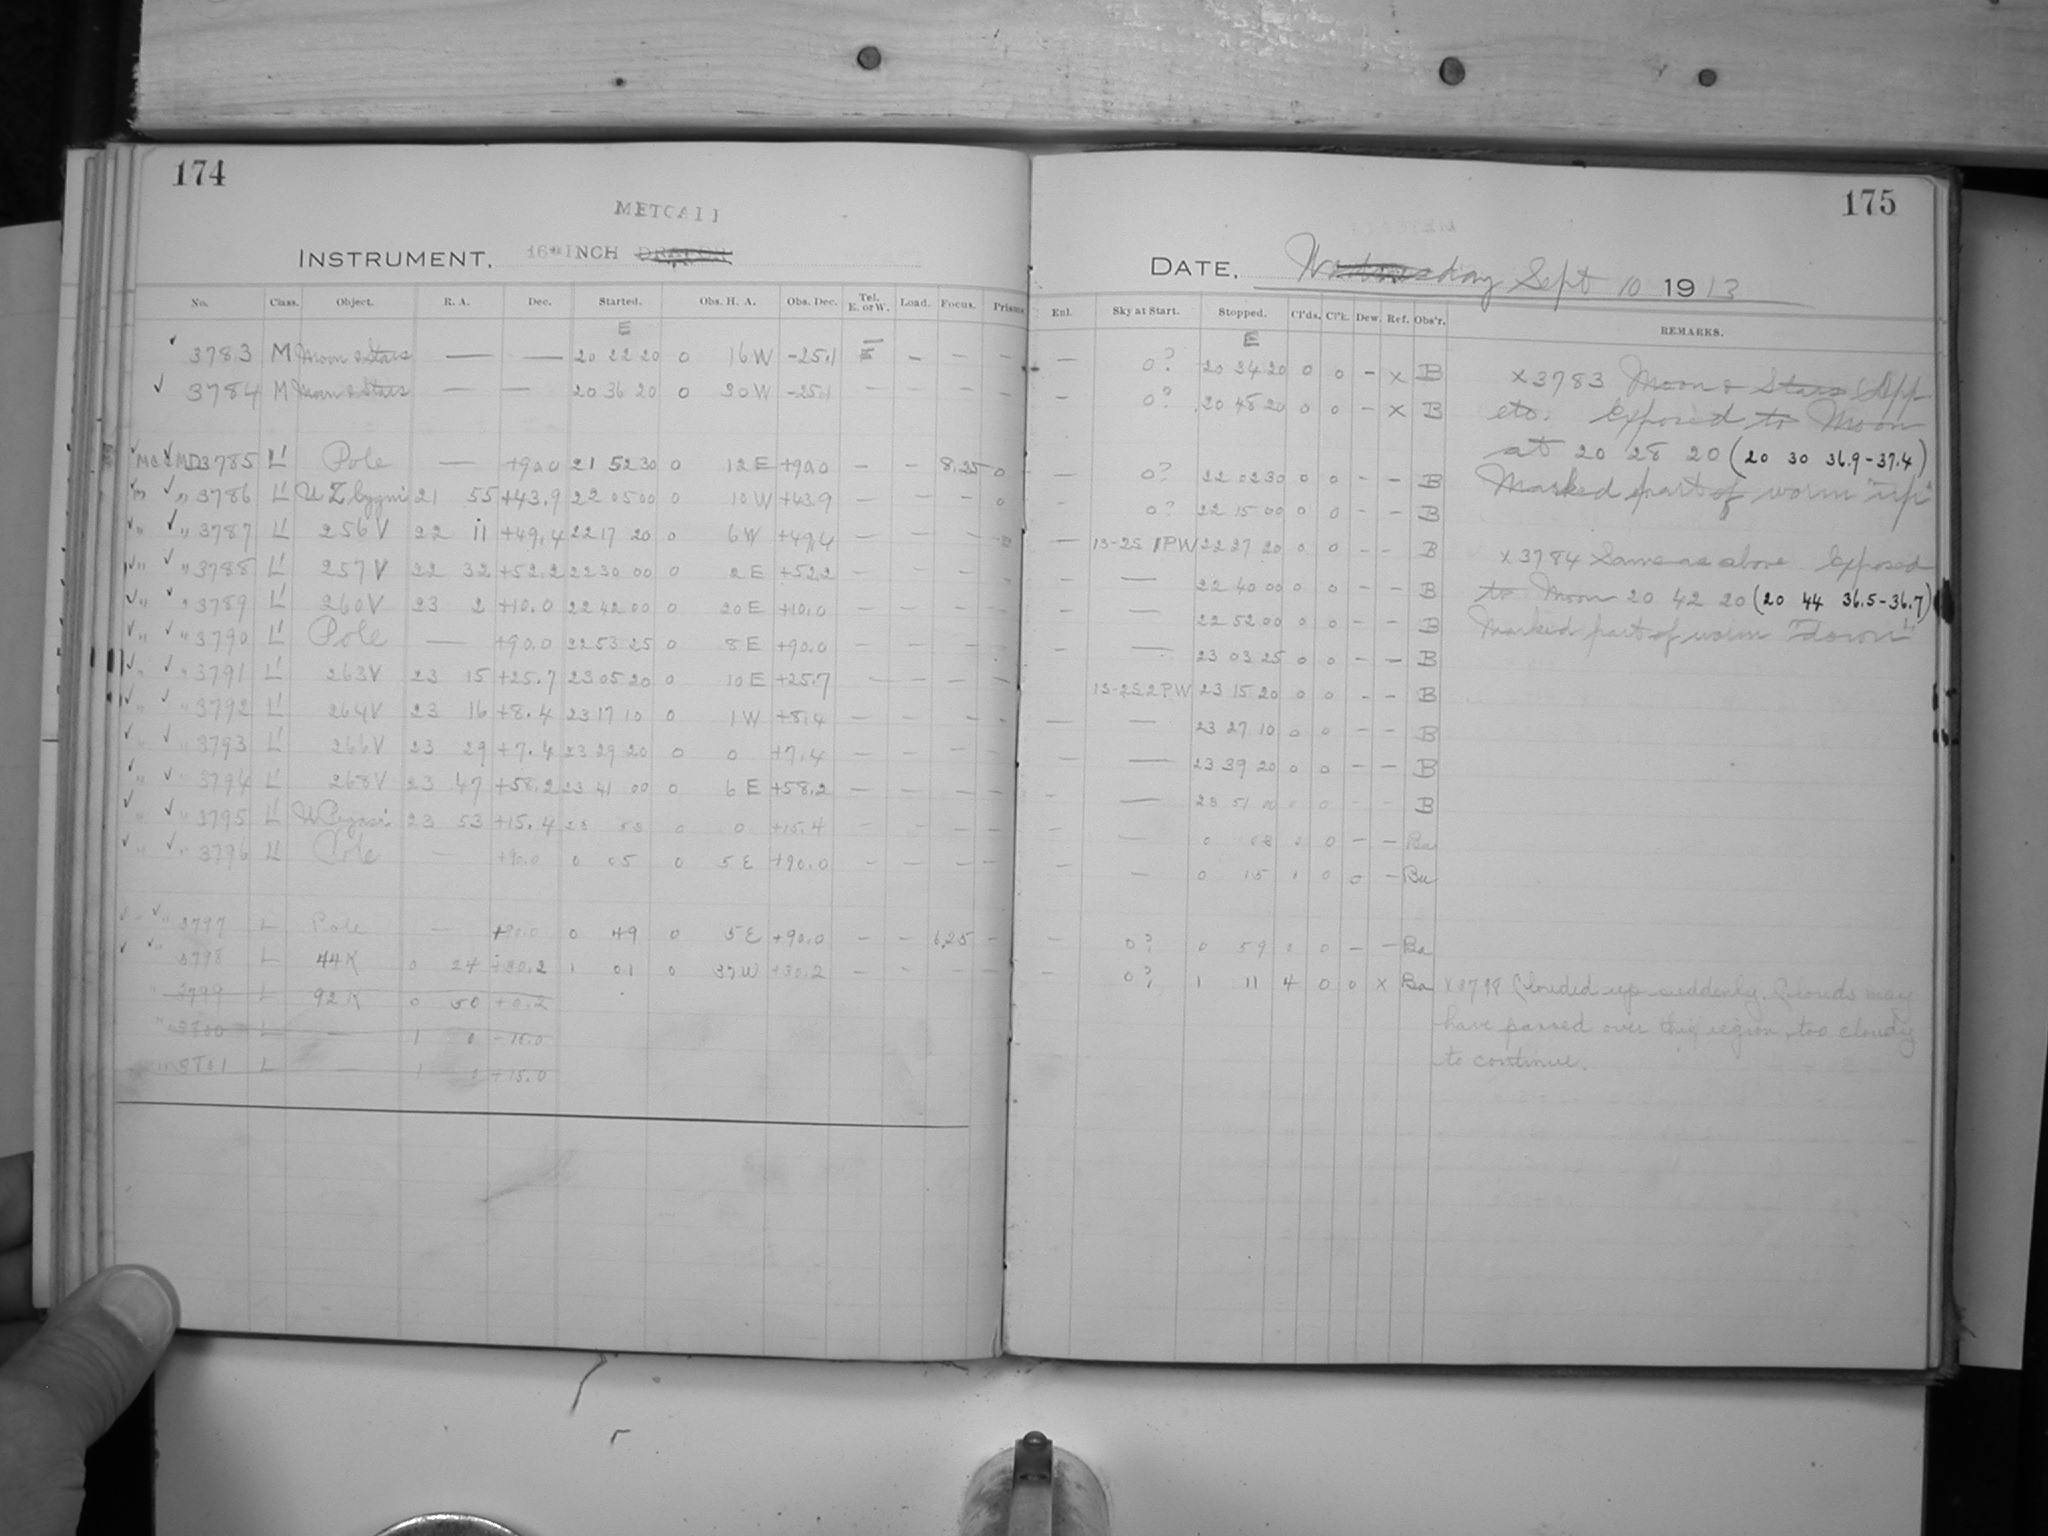 174
METCALF
INSTRUMENT, 16 INCH DRAPER
No. Class. Object. R. A. Dec. Started. Obs. H. A. Obs. Dec. Tel. E. or W. Load. Focus. Prisms
E
3783 M Moon & Stars — — 20 22 20 0 16 W -25.1 E - - -
3784 M Moon & Stars — — 20 36 20 0 30 W -25.1 - - - -
MC & MD 3785 L' Pole — +90.0 21 52 30 0 12 E +90.0 - - 8.25 0
" 3786 L' U Z Cygni 21 55 +43.9 22 05 00 0 10 W +43.9 - - - 0
" " 3787 L' 256 V 22 11 +49.4 22 17 20 0 6 W +49.4 - - -
" " 3788 L' 257 V 22 32 +52.2 22 30 00 0 2 E +52.2 - - - -
" " 3789 L' 260 V 23 2 +10.0 22 42 00 0 20 E +10.0 - - - -
" " 3790 L' Pole — +90.0 22 53 25 0 8 E +90.0 - - - -
" " 3791 L' 263 V 23 15 +25.7 23 05 20 0 10 E +25.7 - - - -
" " 3792 L' 264 V 23 16 +8.4 23 17 10 0 1 W +8.4 - - - -
" " 3793 L' 266 V 23 29 +7.4 23 29 20 0 0 +7.4 - - - -
" " 3794 L' 268 V 23 47 +58.2 23 41 00 0 6 E +58.2 - - - -
" " 3795 L' W Pegasi 23 53 +15.4 23 53 0 0 +15.4 - - - -
" " 3796 L' Pole — +90.0 0 05 0 5 E +90.0 - - - -
" " 3797 L Pole — +90.0 0 49 0 5 E +90.0 - - 6.25 -
" 3798 L 44 K 0 24 +30.2 1 01 0 37 W +30.2 - - - -
" 3799 L 92 K 0 50 +0.2
" 3800 L — 1 0 -15.0
" 3801 L — 1 0 +15.0
175
DATE, Wednesday Sept 10 1913
Enl. Sky at Start. Stopped. Cl'ds. Cl'k. Dew. Ref. Obs'r. REMARKS.
E
— 0? 20 34 20 0 0 - x B
- 0? 20 48 20 0 0 - x B
— 0? 22 02 30 0 0 - - B
- 0? 22 15 00 0 0 - - B
— 13-25 1 PW 22 27 20 0 0 - - B
- — 22 40 00 0 0 - - B
- — 22 52 00 0 0 - - B
- — 23 03 25 0 0 - - B
- 13-25 2 PW 23 15 20 0 0 - - B
- — 23 27 10 0 0 - - B
- — 23 39 20 0 0 - - B
- — 23 51 00 0 0 - - B
- — 0 03 0 0 - - Ba
- — 0 15 1 0 0 - Ba
- 0? 0 59 0 0 - - Ba
- 0? 1 11 4 0 0 x Ba
x 3783 Moon & Stars App
etc. Exposed to Moon
at 20 28 20 (20 30 36.9-37.4)
Marked part of worm "up"
x 3784 Same as above Exposed
to Moon 20 42 20 (20 44 36.5-36.7)
Marked part of worm "down"
x 3798 Clouded up suddenly. Clouds may
have passed over this region, too cloudy
to continue.